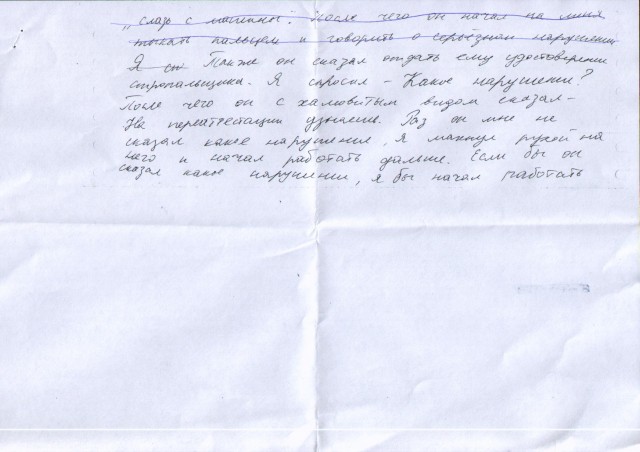 „слазь с машины“. После чего он начал на меня
тыкать пальцем и говорить о серьезном нарушении
Я Также он сказал отдать ему удостоверение
стропальщика. Я спросил – Какое нарушение?
После чего он с халювитым видом сказал –
На переатестации узнаешь. Раз он мне не
сказал какое нарушение, я махнул рукой на
него и начал работать дальше. Если бы он
сказал какое нарушении, я бы начал работать